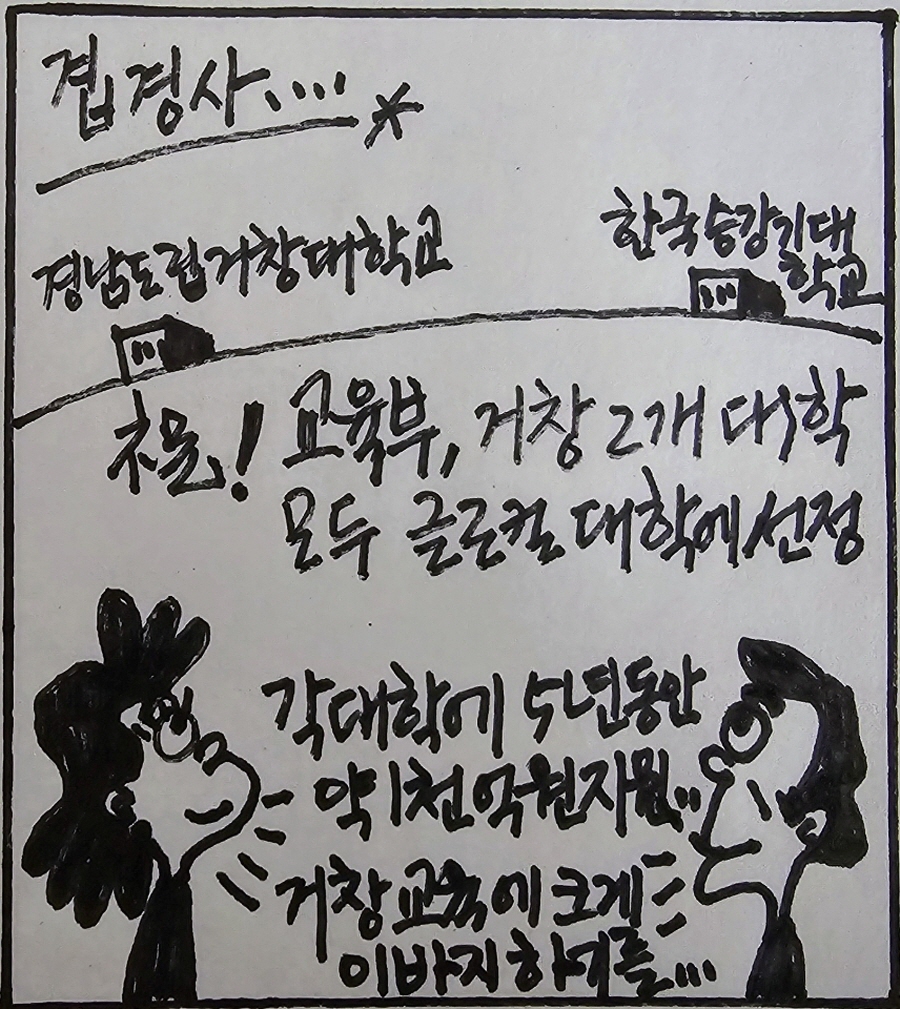 겹경사....
경남도립거창대학교
한국승강기대
학교
축! 교육부, 거창 2개 대학
모두 글로컬 대학에 선정
각 대학에 5년동안
약 1천 억원 지원...
거창 교육에 크게
이바지 하기를...